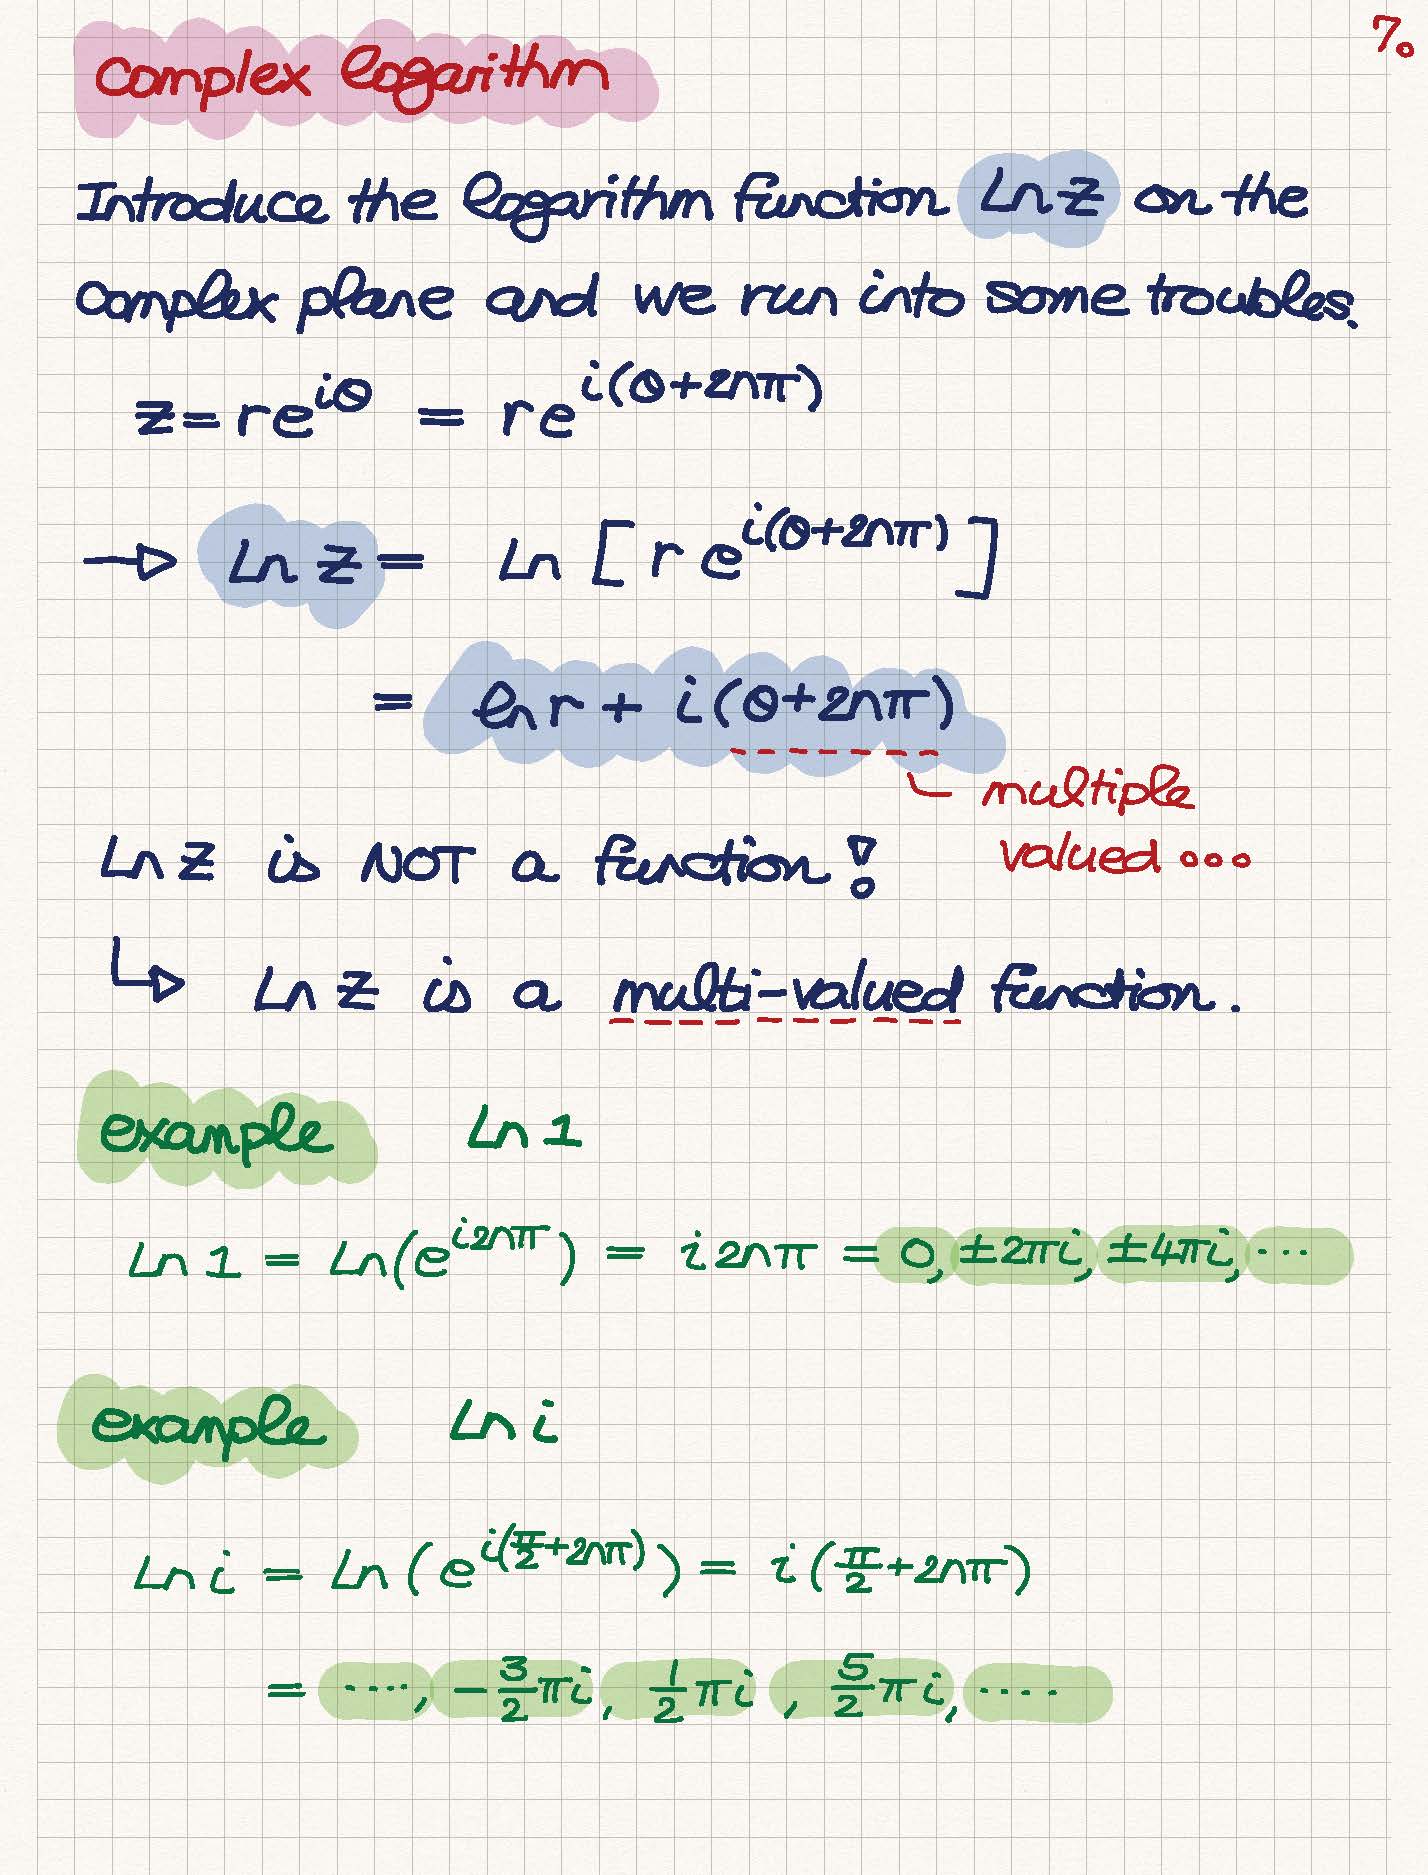 7.
Complex Logarithm
Introduce the Logarithm function Ln z on the
complex plane and we run into some troubles.
z = re^{iθ} = re^{i(θ+2nπ)}
→ Ln z = Ln [re^{i(θ+2nπ)}]
= ln r + i(θ+2nπ)
multiple
valued ...
Ln z is NOT a function!
↳ Ln z is a multi-valued function.
example Ln 1
Ln 1 = Ln(e^{i2nπ}) = i2nπ = 0, ±2πi, ±4πi, ...
example Ln i
Ln i = Ln(e^{i(π/2+2nπ)}) = i(π/2+2nπ)
= ...., -3/2 πi, 1/2 πi, 5/2 πi, ....